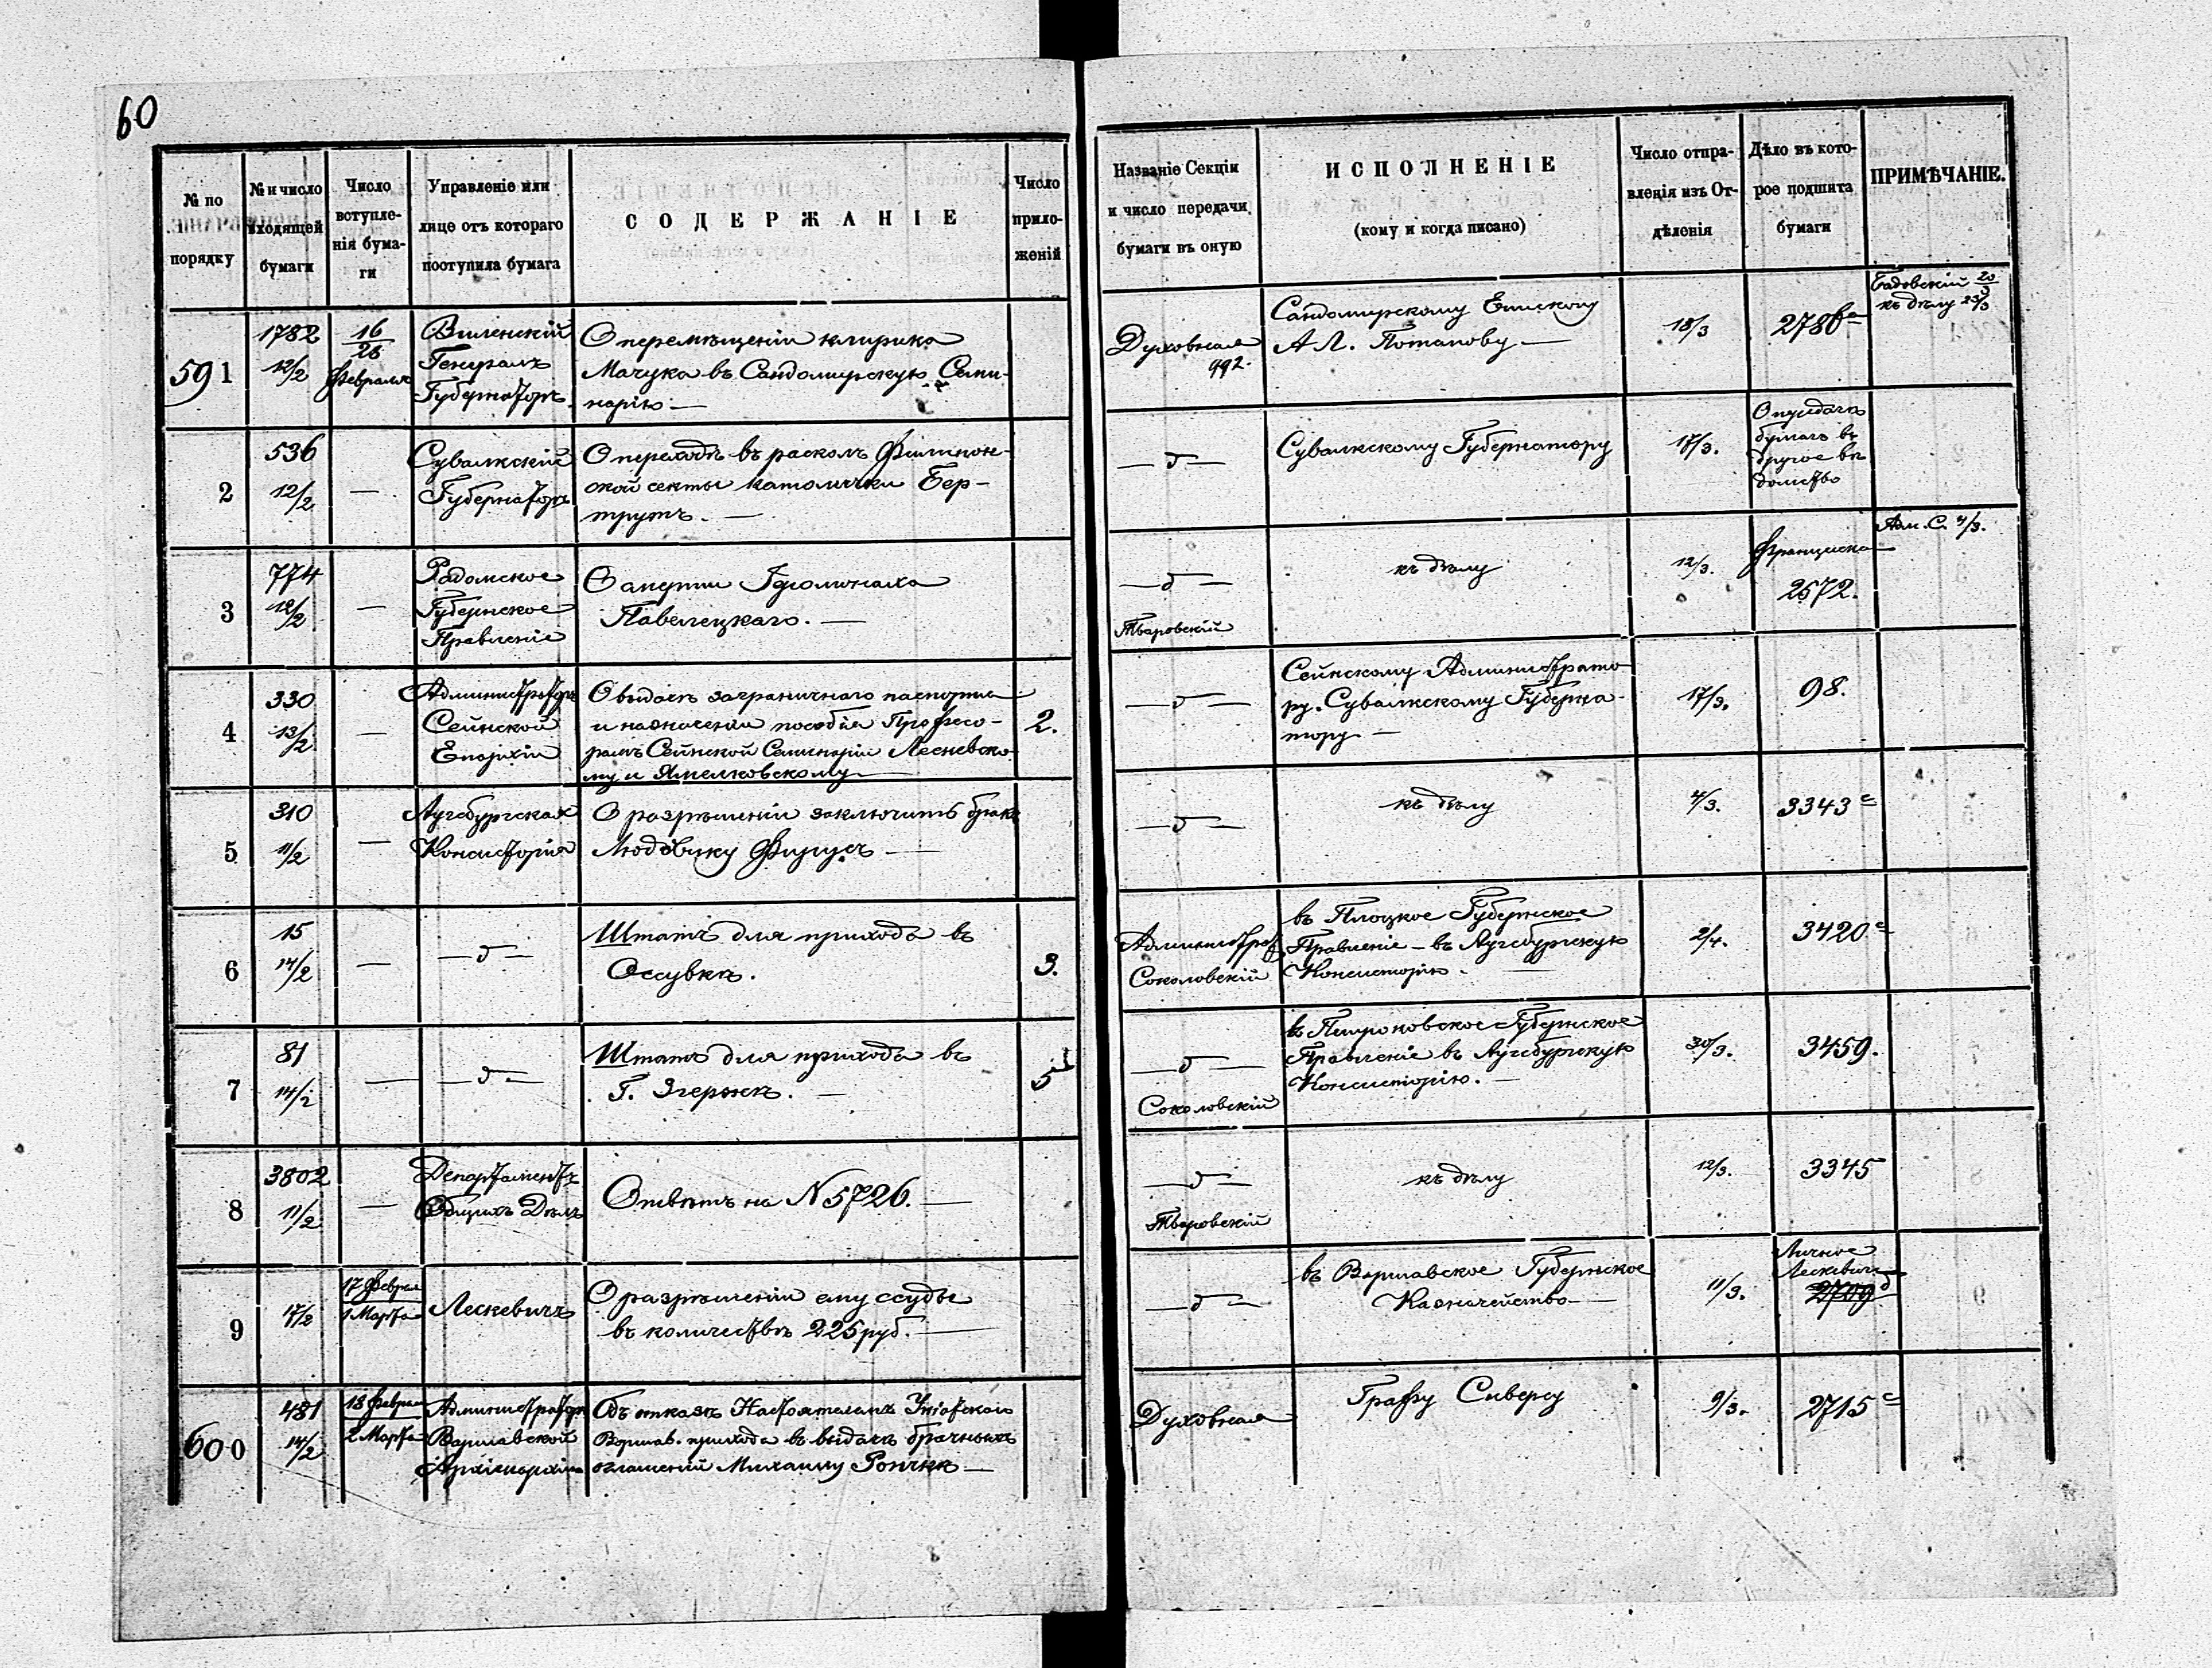 60
№ по
порядку
№ и число
входящей
бумаги
Число
вступле-
нія бума-
ги
Управленіе или
лице отъ котораго
поступила бумага
СОДЕРЖАНІЕ
Число
прило-
женій
Названіе Секціи
и число передачи
бумаги въ оную
ИСПОЛНЕНІЕ
(кому и когда писано)
Число отпра-
вленія изъ От-
дѣленія
Дѣло въ кото-
рое подшита
бумаги
ПРИМѢЧАНІЕ.
591
1782
12/2
16
28
Февраля
Виленскій
Генералъ
Губернаторъ
О перемѣщеніи клирика
Мачука въ Сандомирскую Семи-
нарію —
Духовная
992.
Сандомирскому Епископу
А Л. Потапову —
18/3
2786а
20
3
къ дѣлу 23/3
2
536
12/2
—
Сувалкскій
Губернаторъ
О переходѣ въ расколъ Филипон-
ской секты католички Бер-
трутъ. —
— д —
Сувалкскому Губернатору
17/3.
О передачѣ
бумагъ въ
другое вѣ
домство
3
774
12/2
—
Радомское
Губернское
Правленіе
О смерти Іеромонаха
Павелецкаго. —
— д —
Тваровскій
къ дѣлу
12/3.
Францискан
2572.
4/3.
4
330
13/2
—
Администраторъ
Сейнской
Епархіи
О выдачѣ заграничнаго паспорта
и назначеніи пособія Професо-
рамъ Сейнской Семинаріи Лесневско-
му и Ямелковскому —
2.
— д —
Сейнскому Администрато
ру. Сувалкскому Губерна-
тору —
17/3.
98.
5
310
11/2
—
Аугсбургская
Консисторія
О разрѣшеніи заключить бракъ
Людовику —
— д —
къ дѣлу
4/3.
3343 с
6
15
14/2
—
— д —
Штатъ для прихода въ
Оссувкѣ.
3.
Администрат
Соколовскій
въ Плоцкое Губернское
Правленіе — въ Аугсбургскую
Консисторію. —
2/4.
3420 с
7
81
14/2
—
— д —
Штатъ для прихода въ
Г. Згержѣ. —
5
— д —
Соколовскій
въ Петроковское Губернское
Правленіе въ Аугсбургскую
Консисторію. —
30/3.
3459.
8
3802
11/2
—
Департаментъ
Общихъ Дѣлъ
Отвѣтъ на N 5726. —
— д —
Тваровскій
къ дѣлу
12/3.
3345
9
17/2
17 Феврал
1 Марта
Лескевичъ
О разрѣшеніи ему ссуды
въ количествѣ 225 руб. —
— д —
въ Варшавское Губернское
Казначейство —
11/3.
Личное
Лескевича
2709
600
481
14/2
18 Феврал
2 Марта
Администраторъ
Варшавской
Архіепархіи
Объ отказѣ Настоятелемъ Уніатскаго
Варшав. прихода въ выдачѣ брачныхъ
оглашеній Михаилу Рончкѣ —
Духовная
Графу Сиверсу
9/3.
2715 с